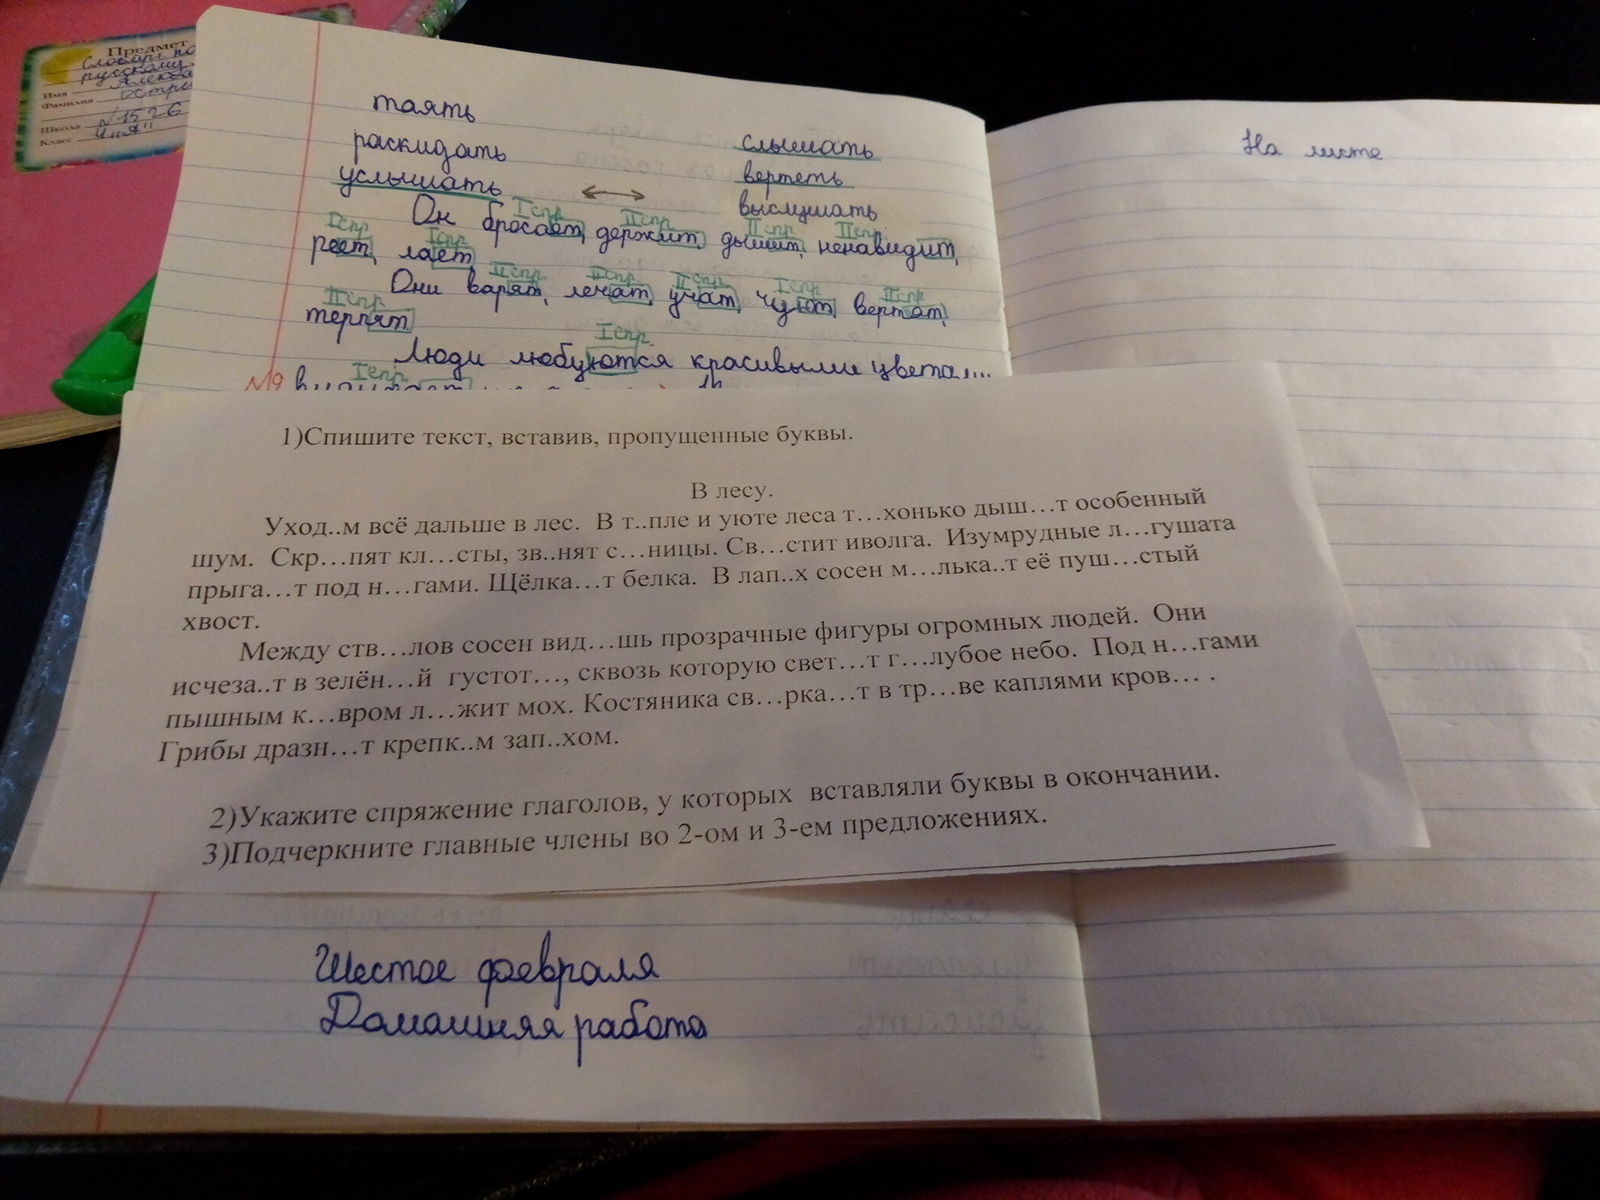 Предмет
Словарь по
русскому
Имя
Фамилия
Школа № 1526
Класс 4 "Я"
таять
раскидать
услышать
слышать
вертеть
выслушать
На листе
I спр. II спр.
Он бросает, держит, дышит, ненавидит,
I спр. I спр. II спр. II спр.
реет, лает
II спр. II спр. II спр. I спр. II спр.
Они варят, лечат, учат, чуют, вертят,
II спр.
терпят
I спр.
Люди любуются красивыми
I спр.
1)Спишите текст, вставив, пропущенные буквы.
В лесу.
Уход..м всё дальше в лес. В т..пле и уюте леса т…хонько дыш…т особенный
шум. Скр…пят кл…сты, зв..нят с…ницы. Св…стит иволга. Изумрудные л…гушата
прыга…т под н…гами. Щёлка…т белка. В лап..х сосен м…лька..т её пуш…стый
хвост.
Между ств…лов сосен вид…шь прозрачные фигуры огромных людей. Они
исчеза..т в зелён…й густот…, сквозь которую свет…т г…лубое небо. Под н…гами
пышным к…вром л…жит мох. Костяника св…рка…т в тр…ве каплями кров… .
Грибы дразн…т крепк..м зап..хом.
2)Укажите спряжение глаголов, у которых вставляли буквы в окончании.
3)Подчеркните главные члены во 2-ом и 3-ем предложениях.
Шестое февраля
Домашняя работа